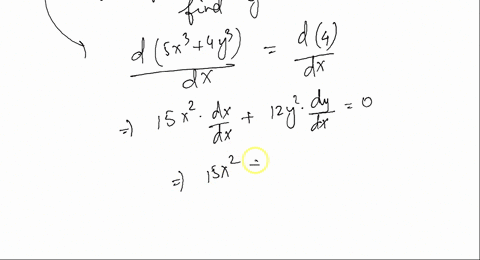 find y
d(5x³+4y³)/dx = d(4)/dx
⇒ 15x²·dx/dx + 12y²·dy/dx = 0
⇒ 15x² =